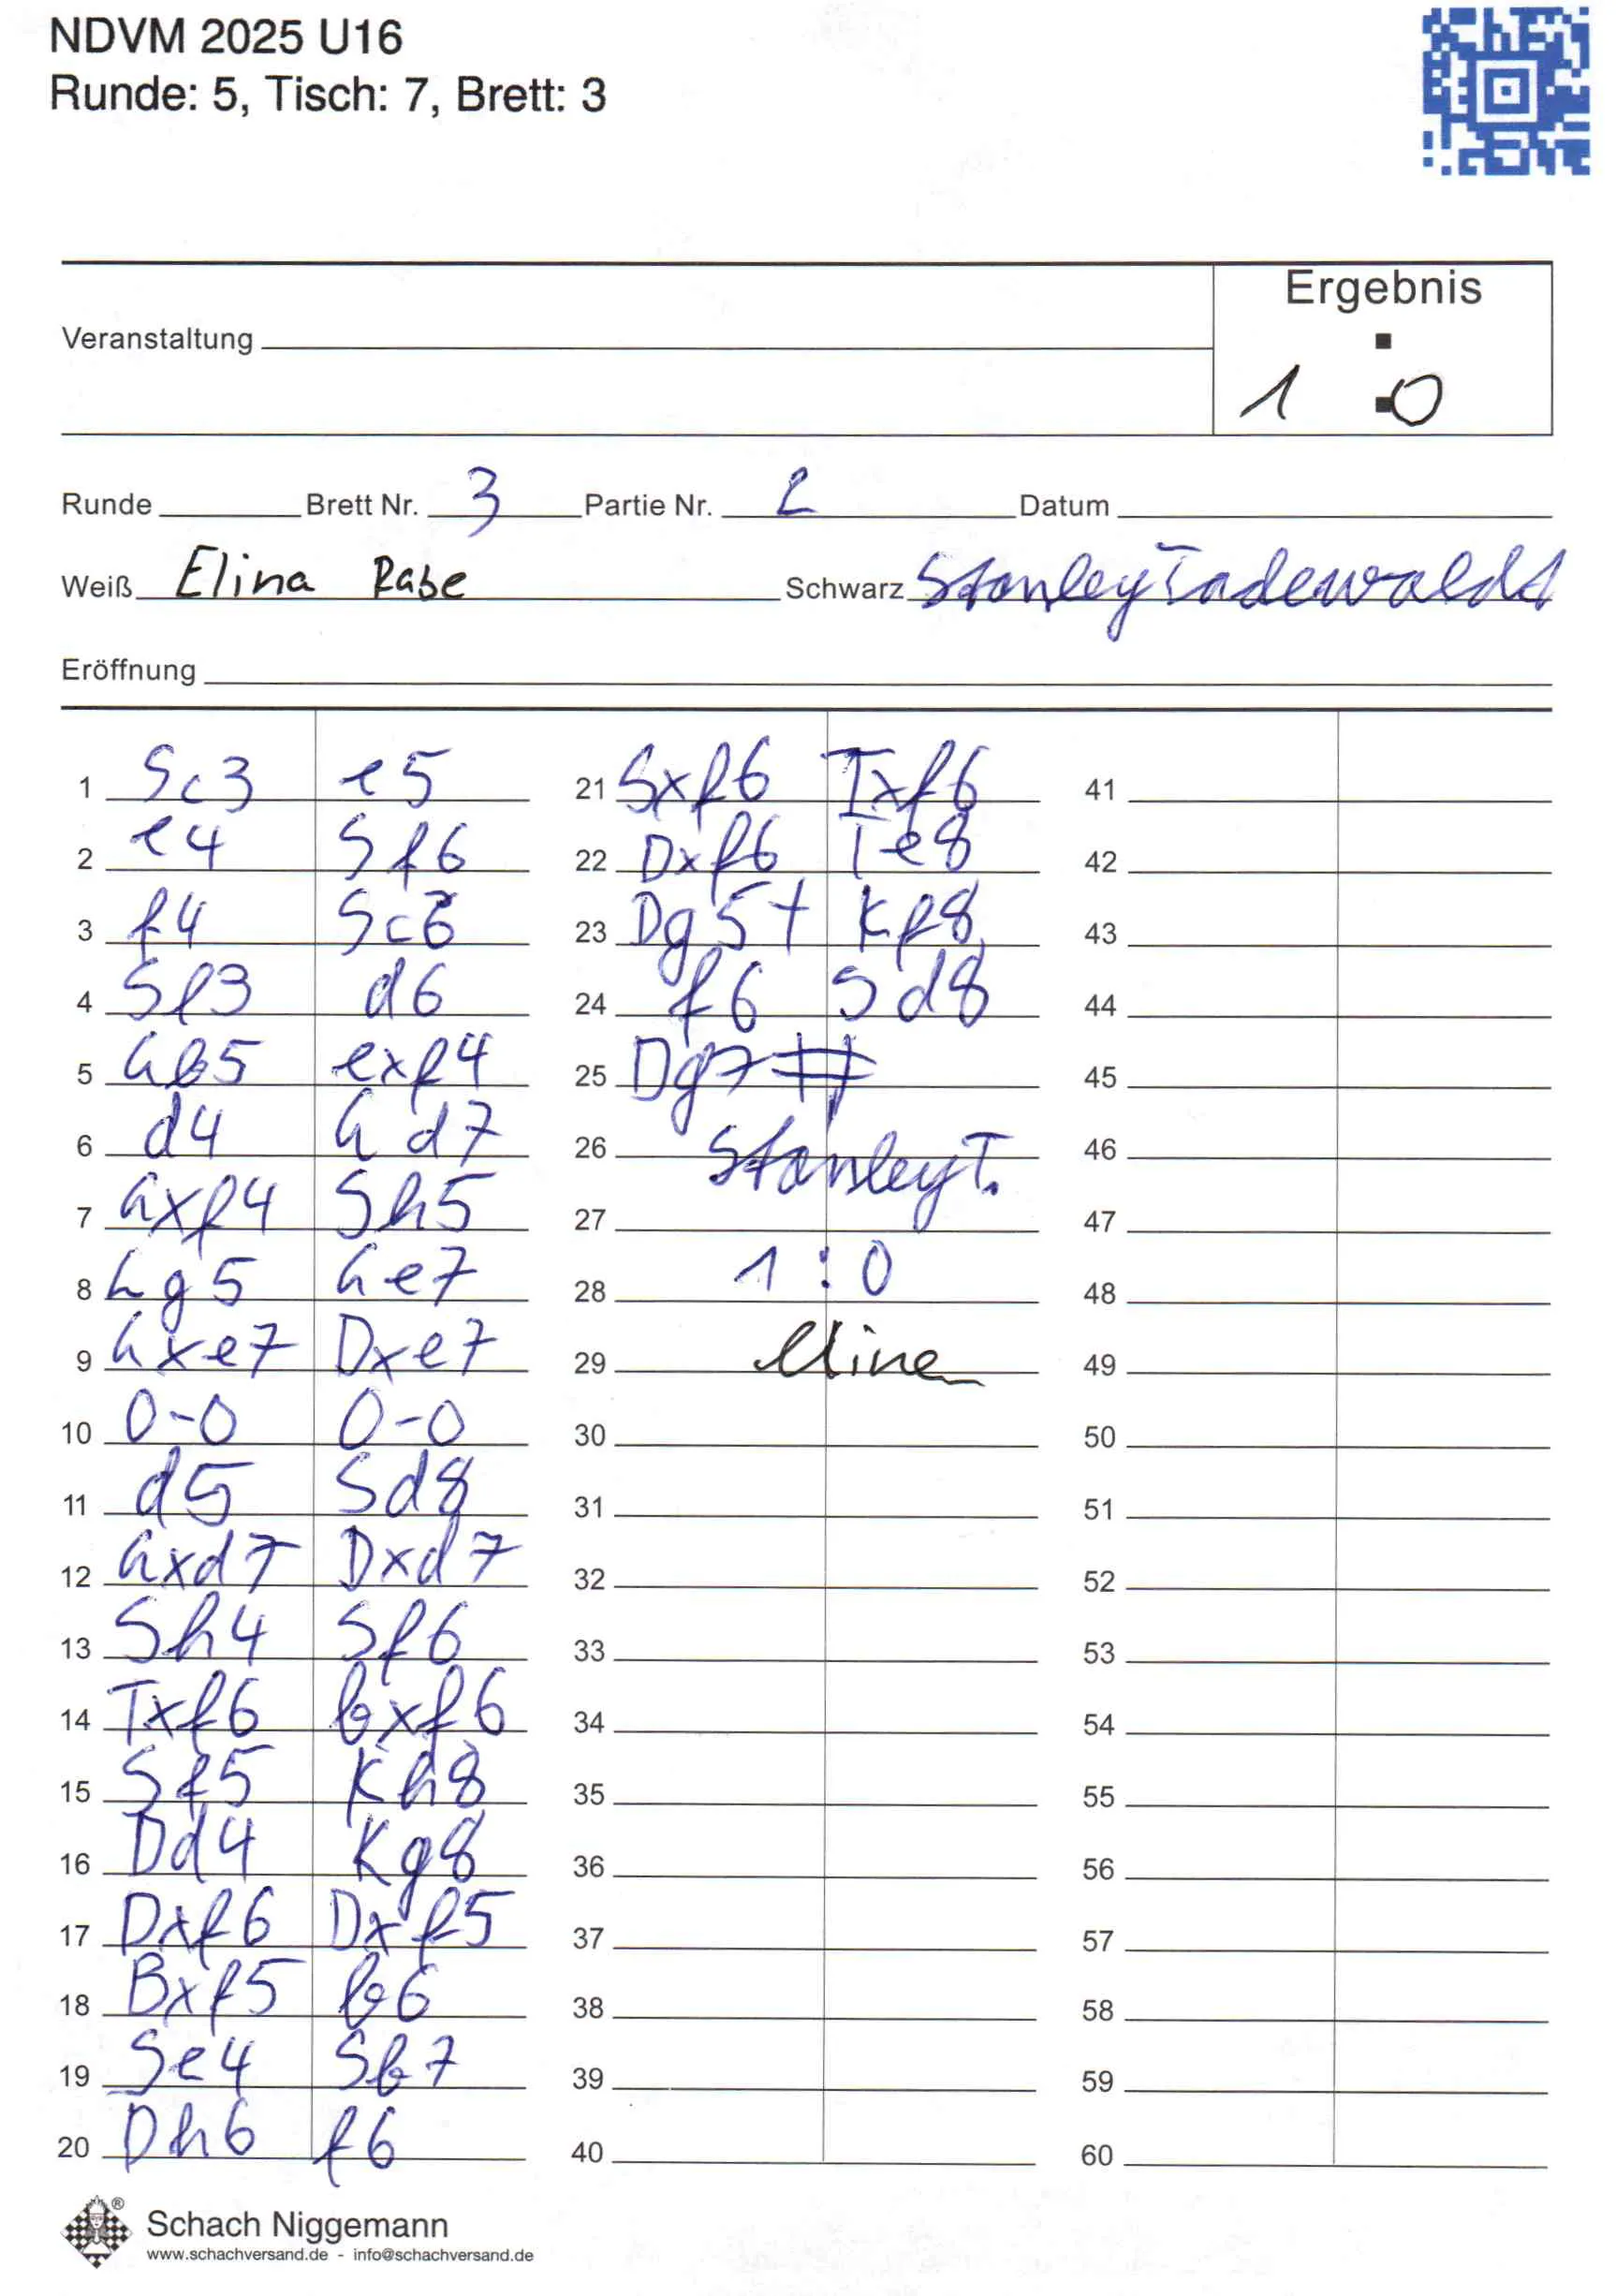 NDVM 2025 U16
Runde: 5, Tisch: 7, Brett: 3
Ergebnis
Veranstaltung
:
1 0
Runde Brett Nr. 3 Partie Nr. 2 Datum
Weiß Elina Rabe Schwarz Stanley Tadewaldt
Eröffnung
1 Sc3 e5 21 Sxf6 Txf6 41
2 e4 Sf6 22 Dxf6 Te8 42
3 f4 Sc6 23 Dg5+ Kf8 43
4 Sf3 d6 24 f6 Sd8 44
5 Lb5 exf4 25 Dg7# 45
6 d4 Ld7 26 Stanley T. 46
7 Lxf4 Sh5 27 47
8 Lg5 Le7 28 1:0 48
9 Lxe7 Dxe7 29 Elina 49
10 0-0 0-0 30 50
11 d5 Sd8 31 51
12 Lxd7 Dxd7 32 52
13 Sh4 Sf6 33 53
14 Txf6 bxf6 34 54
15 Sf5 Kh8 35 55
16 Dd4 Kg8 36 56
17 Dxf6 Dxf5 37 57
18 Bxf5 b6 38 58
19 Se4 Sb7 39 59
20 Dh6 f6 40 60
Schach Niggemann
www.schachversand.de - info@schachversand.de